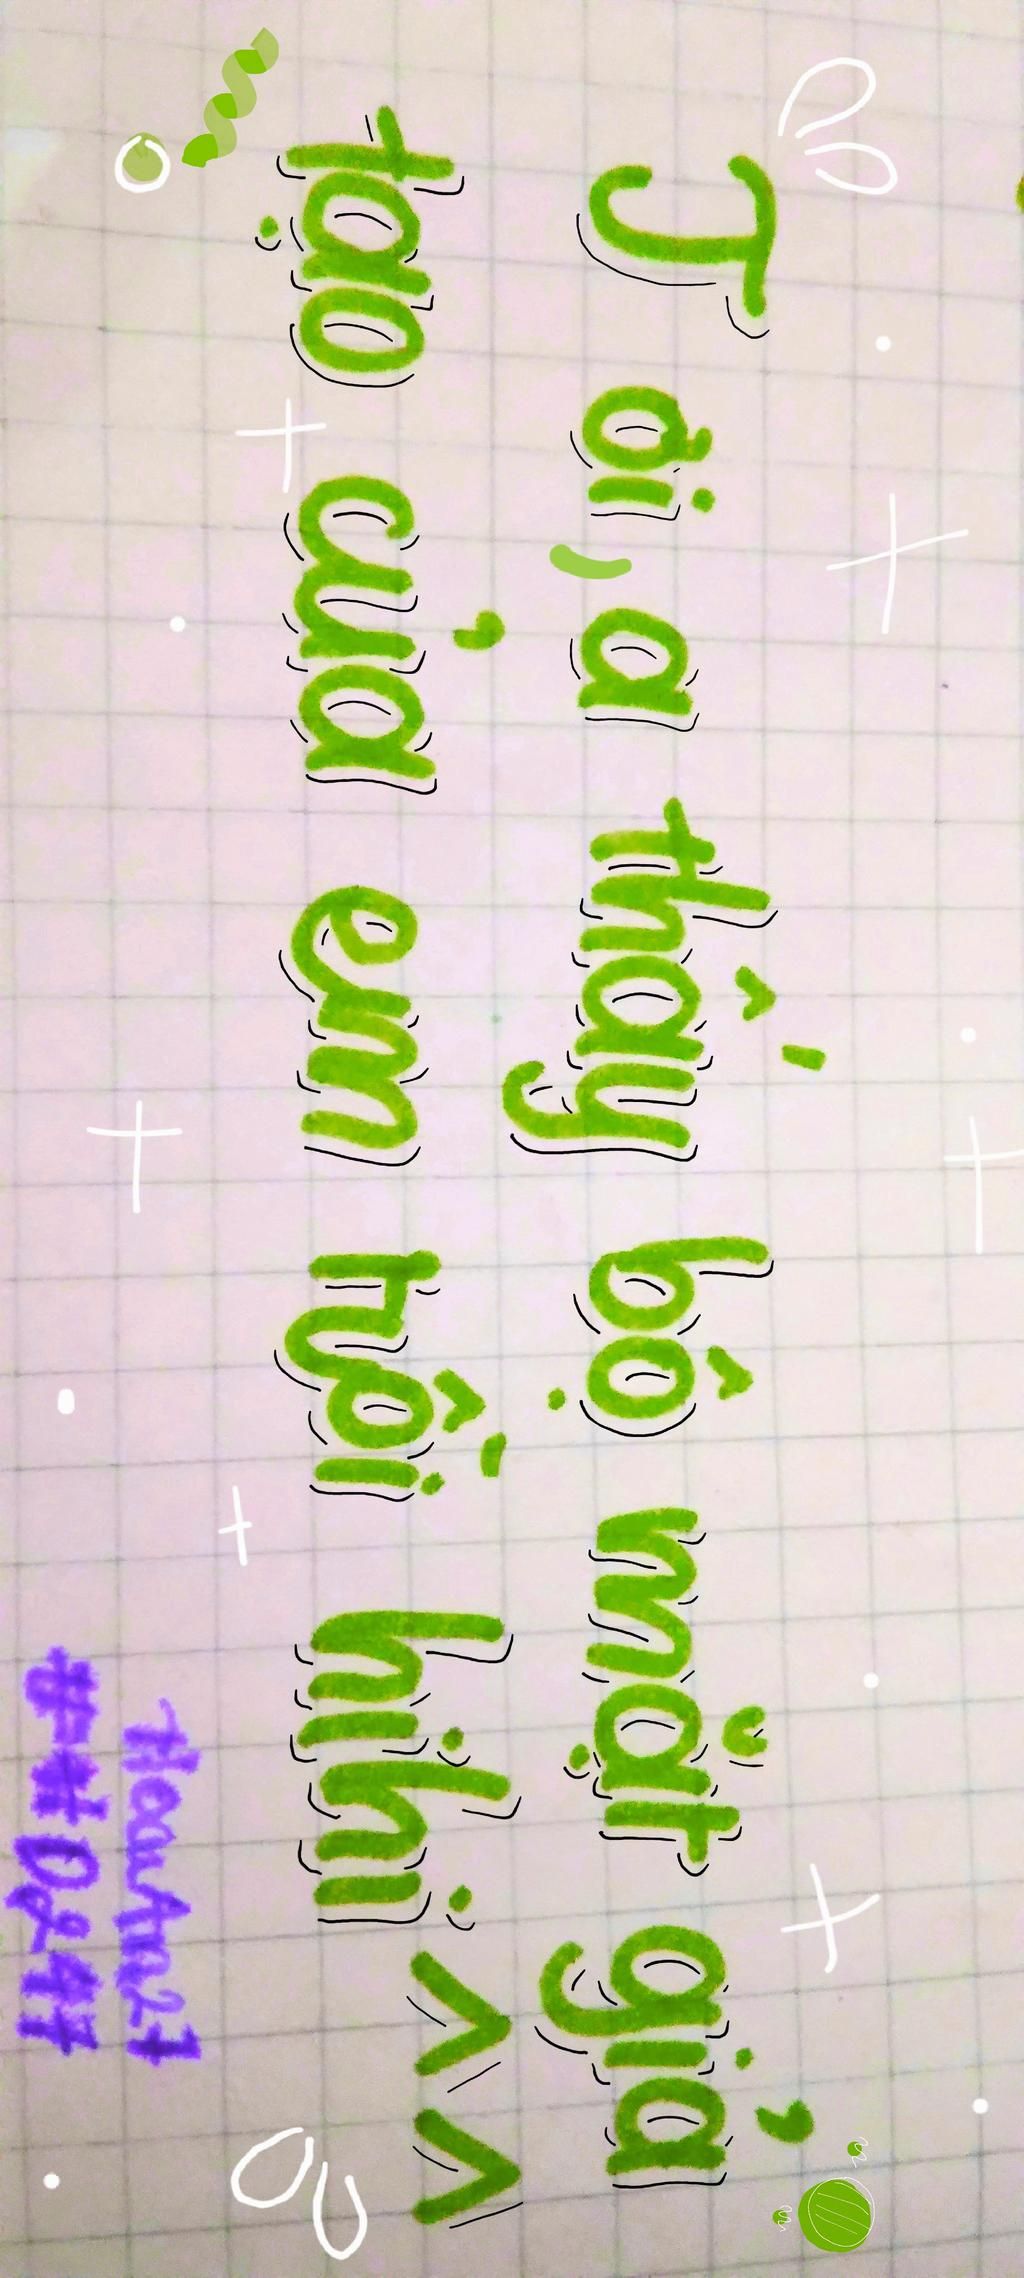 J ơi, a thấy bộ mặt giả
tạo của em rồi hihi ^^
Hoantm27
##0g247